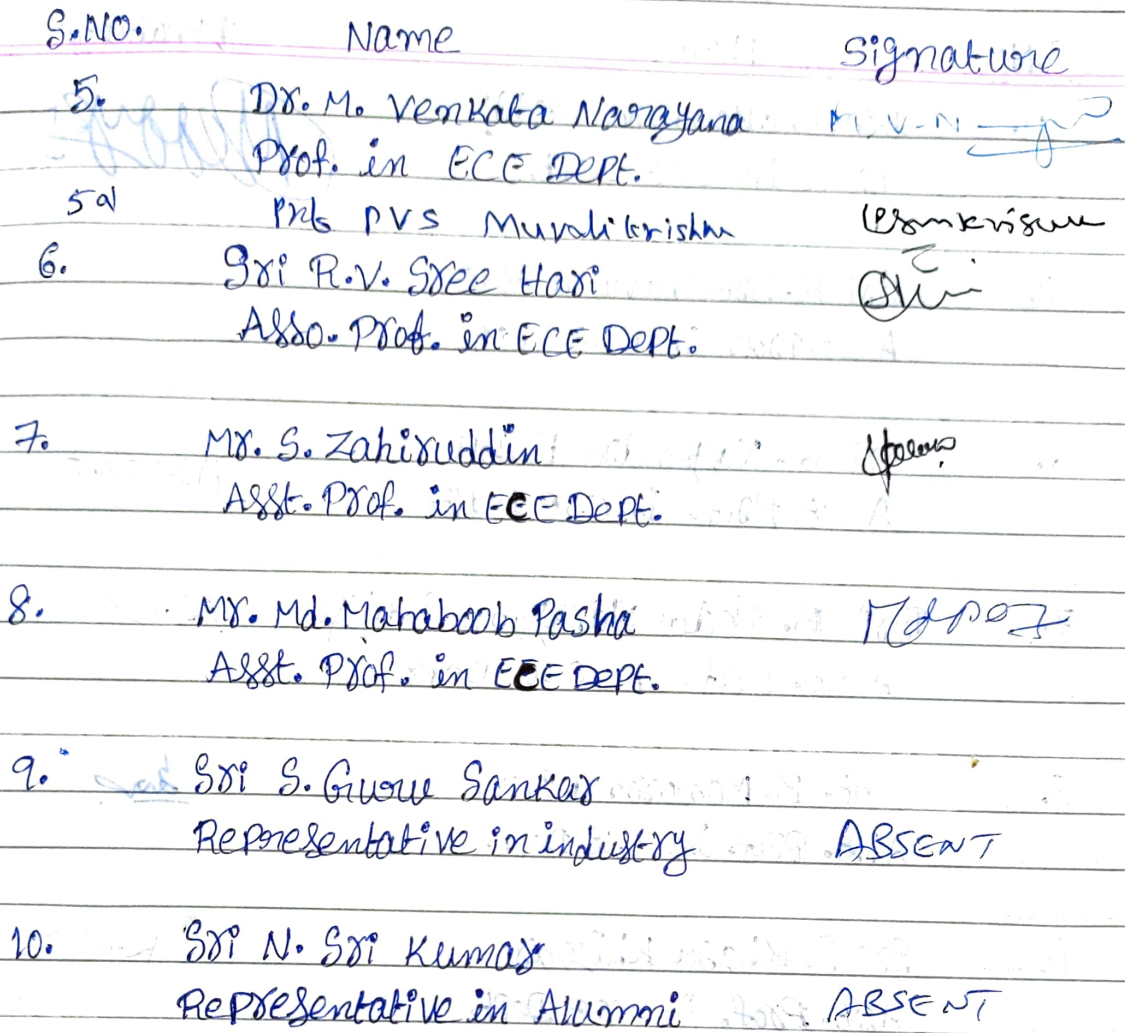 S.NO. Name Signature
5. Dr. M. Venkata Narayana M.V.N
Prof. in ECE Dept.
5a) PVS Muralikrishna
6. Sri R.V. Sree Hari
Asso. Prof. in ECE Dept.
7. Mr. S. Zahiruddin
Asst. Prof. in ECE Dept.
8. Mr. Md. Mahaboob Pasha
Asst. Prof. in ECE Dept.
9. Sri S. Guru Sankar
Representative in industry ABSENT
10. Sri N. Sri Kumar
Representative in Alumni ABSENT